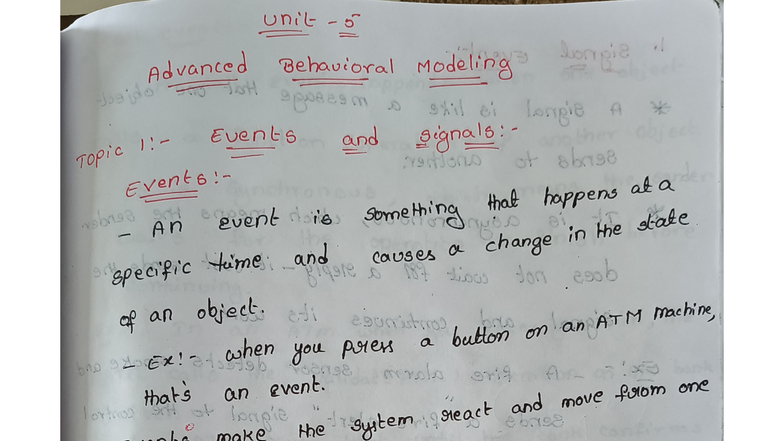 Unit - 5
Advanced Behavioral Modeling
Topic 1:- Events and signals:-
Events:-
- An event is something that happens at a
specific time and causes a change in the state
of an object.
- Ex:- when you press a button on an ATM machine,
that's an event.
make the system react and move from one